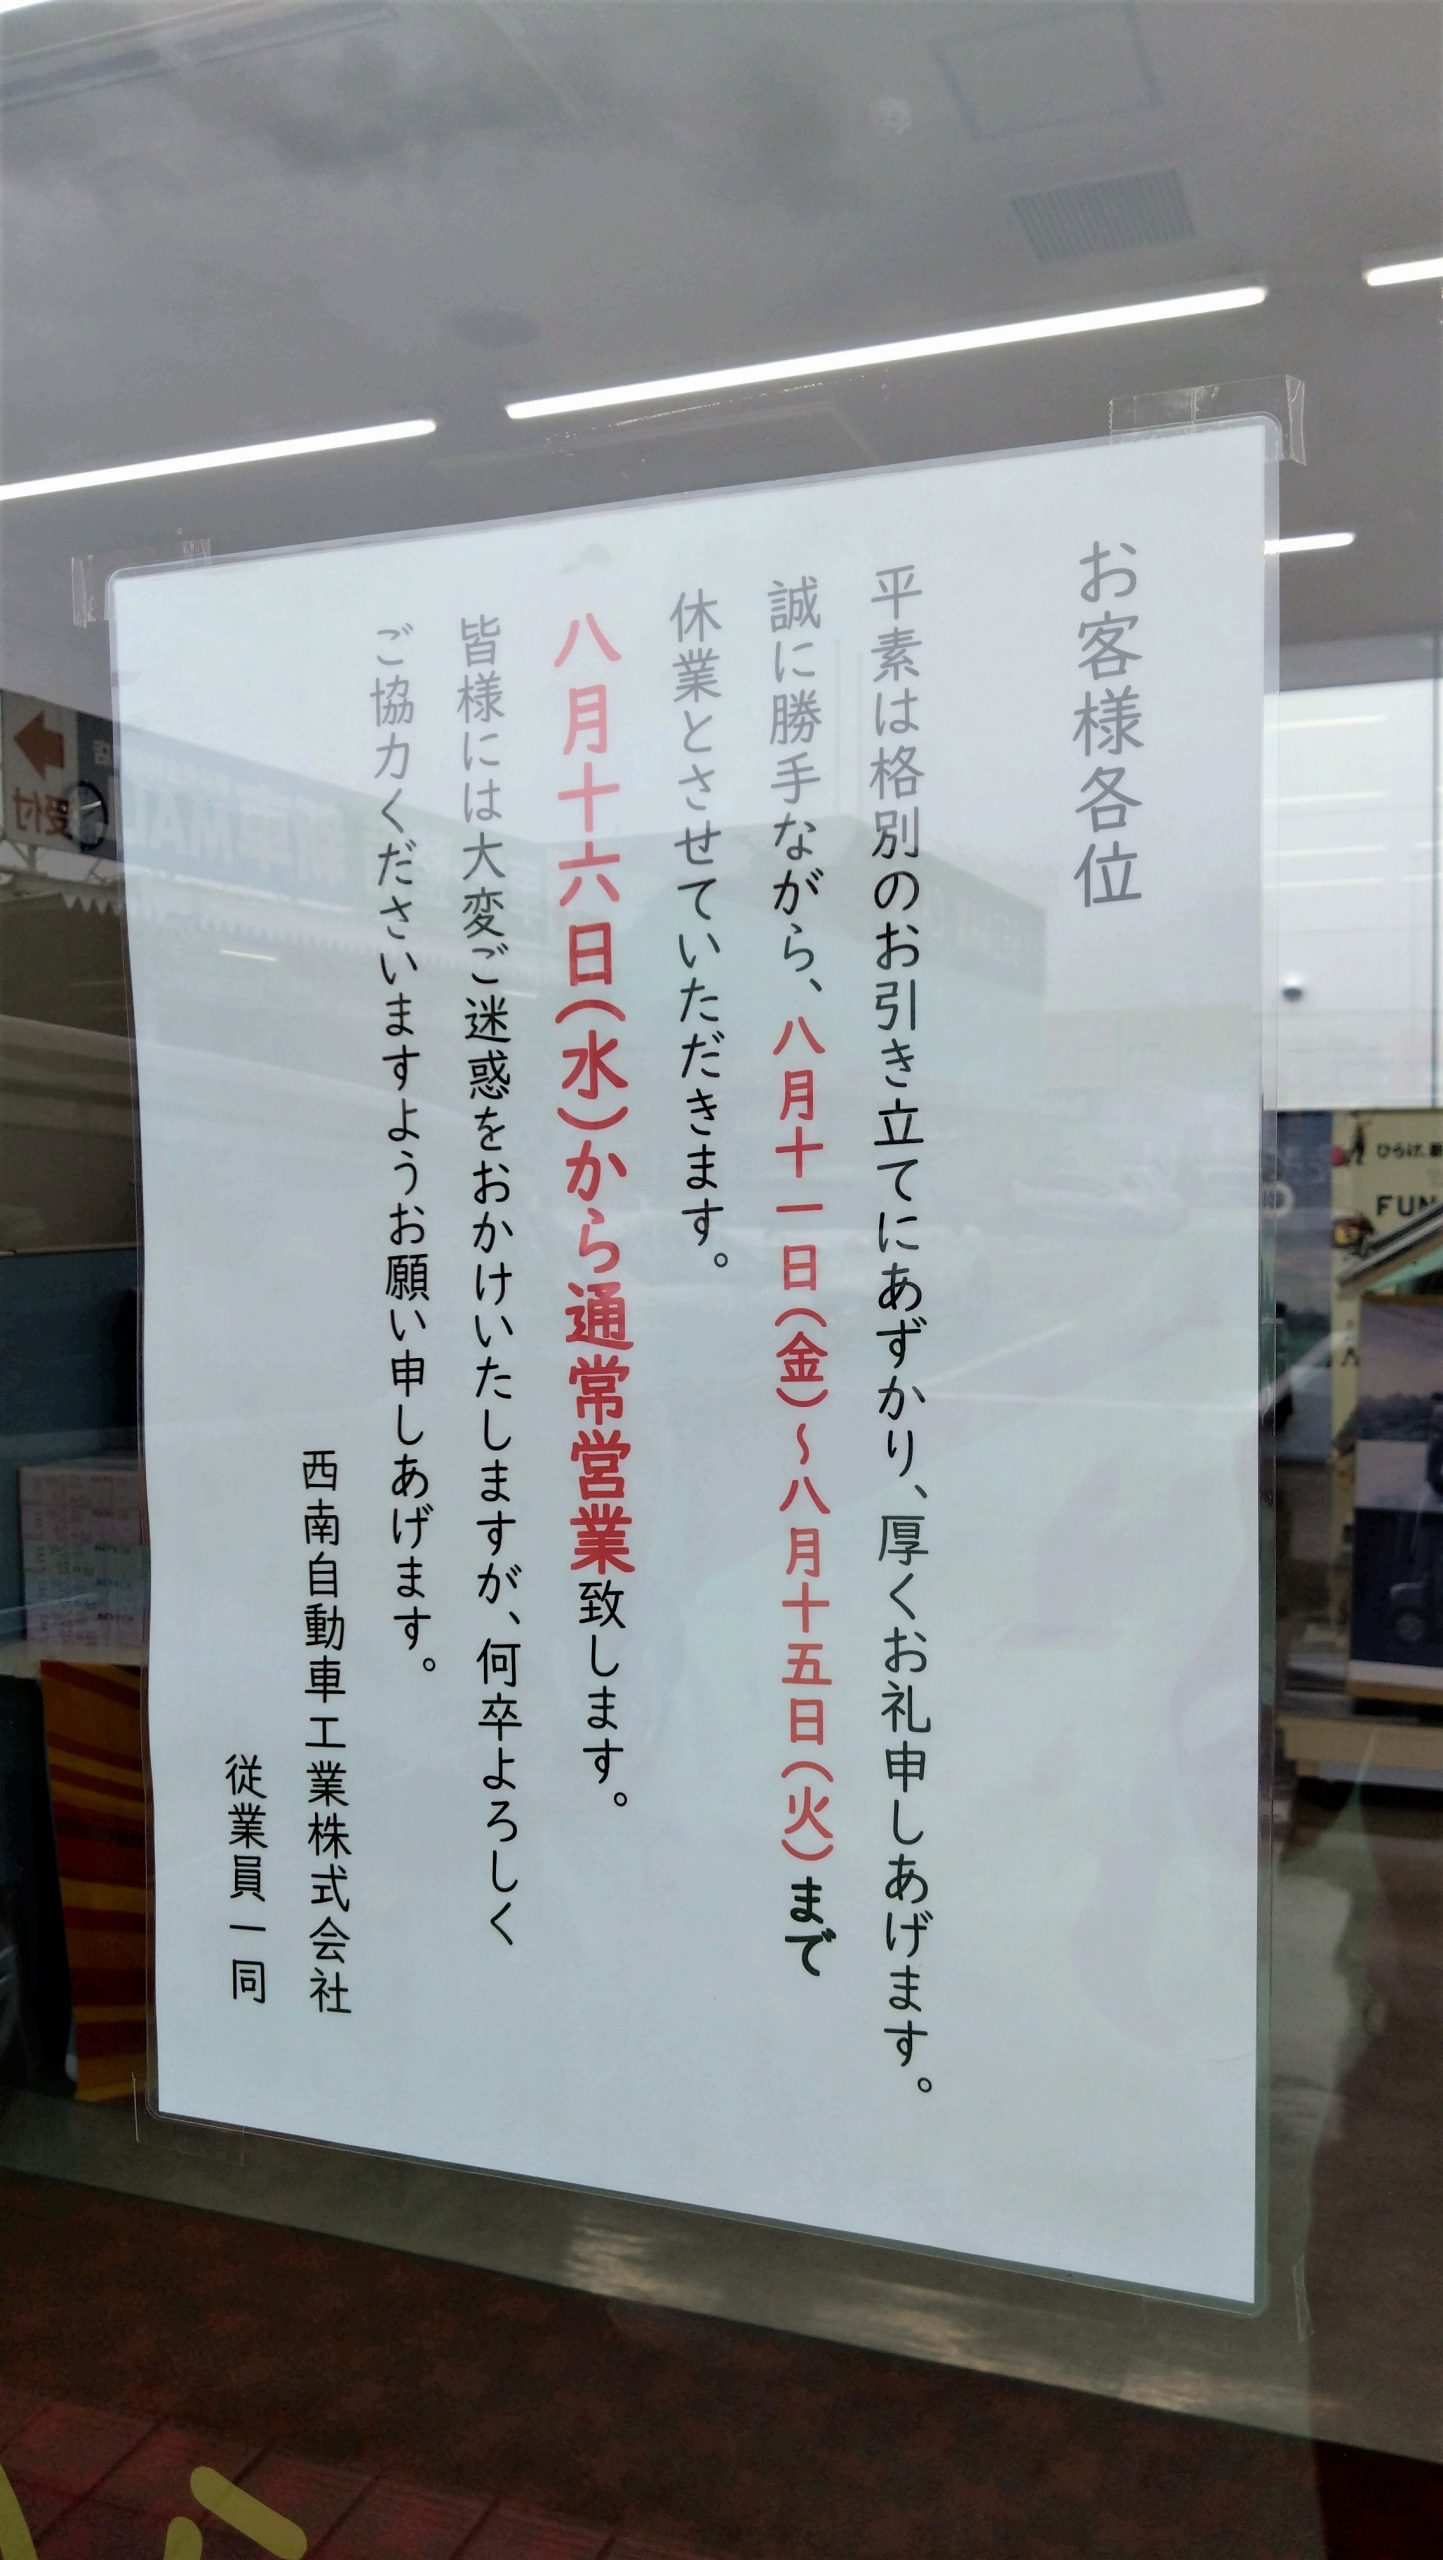 お客様各位
平素は格別のお引き立てにあずかり、厚くお礼申しあげます。
誠に勝手ながら、八月十一日(金)～八月十五日(火)まで
休業とさせていただきます。
八月十六日(水)から通常営業致します。
皆様には大変ご迷惑をおかけいたしますが、何卒よろしく
ご協力くださいますようお願い申しあげます。
西南自動車工業株式会社
従業員一同
受付
新車MAL
ひらけ、新
FUN